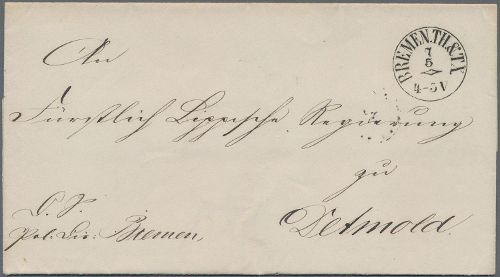 An
BREMEN.TH.&TX
7
5
4-5V
Fürstlich Lippische Regierung
zu
Detmold.
D. S.
Pol: Dir: Bremen,